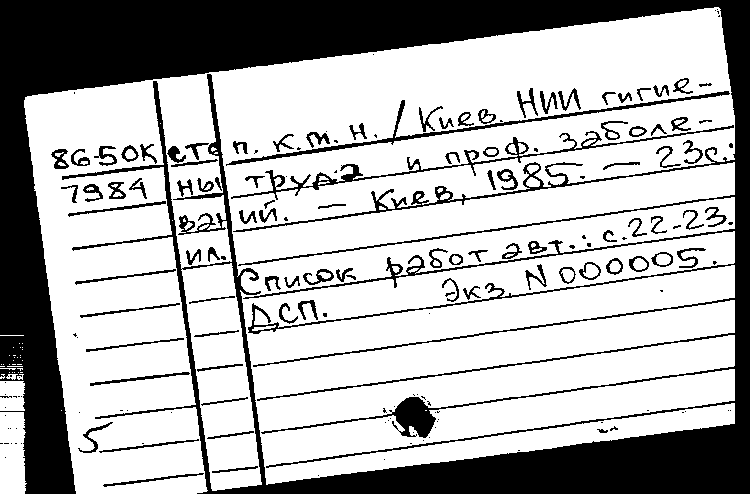 86-50К степ. к.м.н. / Киев. НИИ гигие-
7984 ны труда и проф. заболе-
ваний. — Киев, 1985. — 23с.:
ил.
Список работ авт.: с.22-23.
ДСП. Экз. N 000005.
5